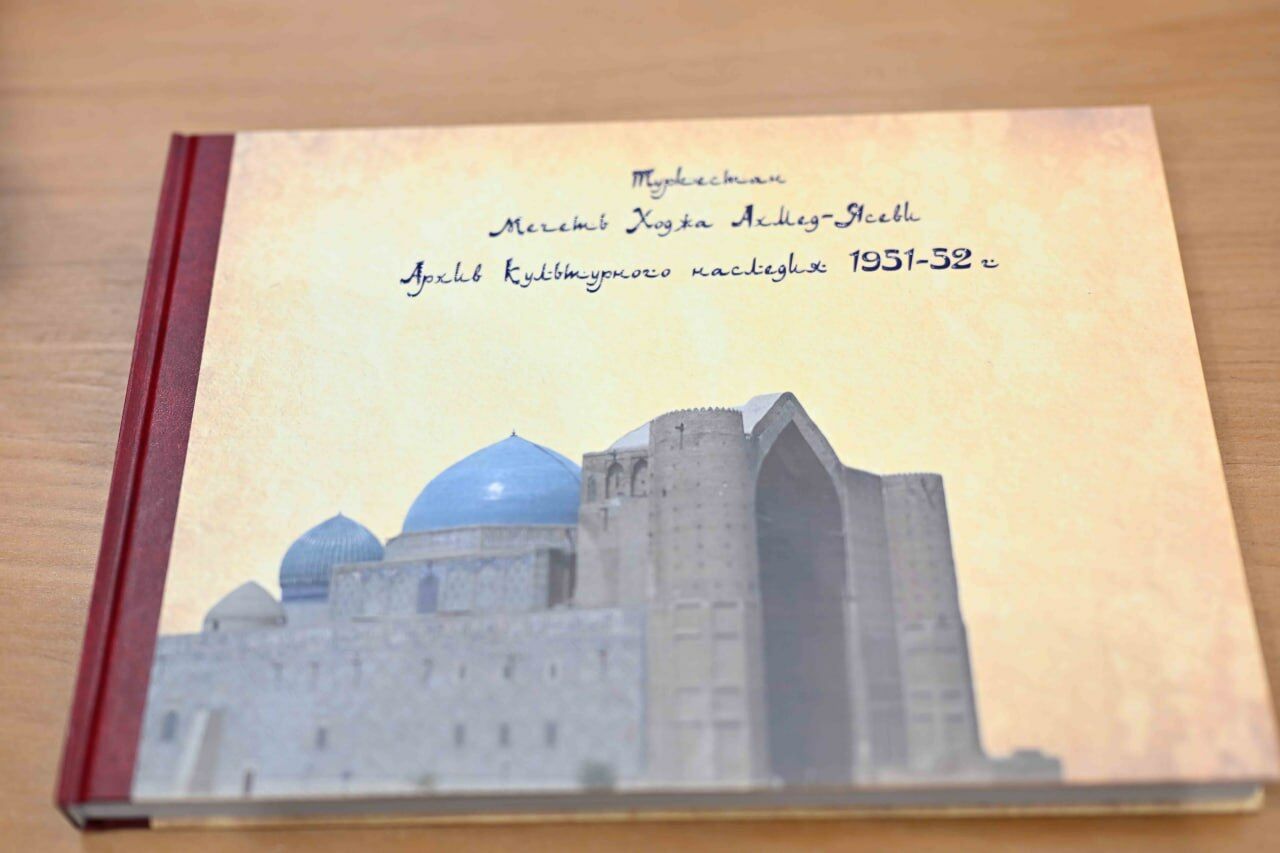 Туркестан
Мечеть Ходжа Ахмед-Ясеви
Архив Культурного наследия 1951-52 г